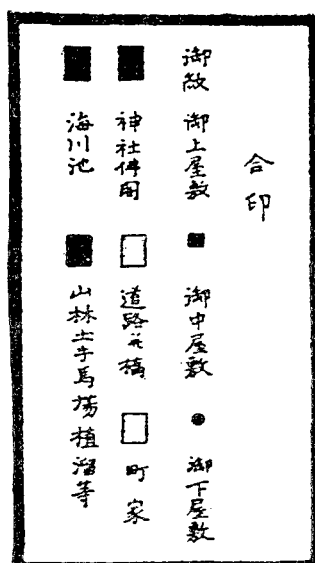 合印
御紋 御上屋敷 ■ 御中屋敷 ● 御下屋敷
神社佛閣 道路并橋 町家
海川池 山林土手馬場植溜等